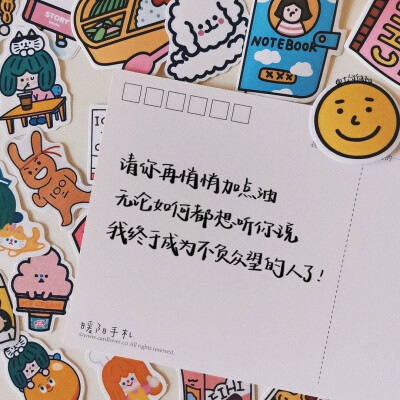 STORY
NOTEBOOK
请你再悄悄加点油
无论如何都想听你说
我终于成为不负众望的人了!
暖阳手札